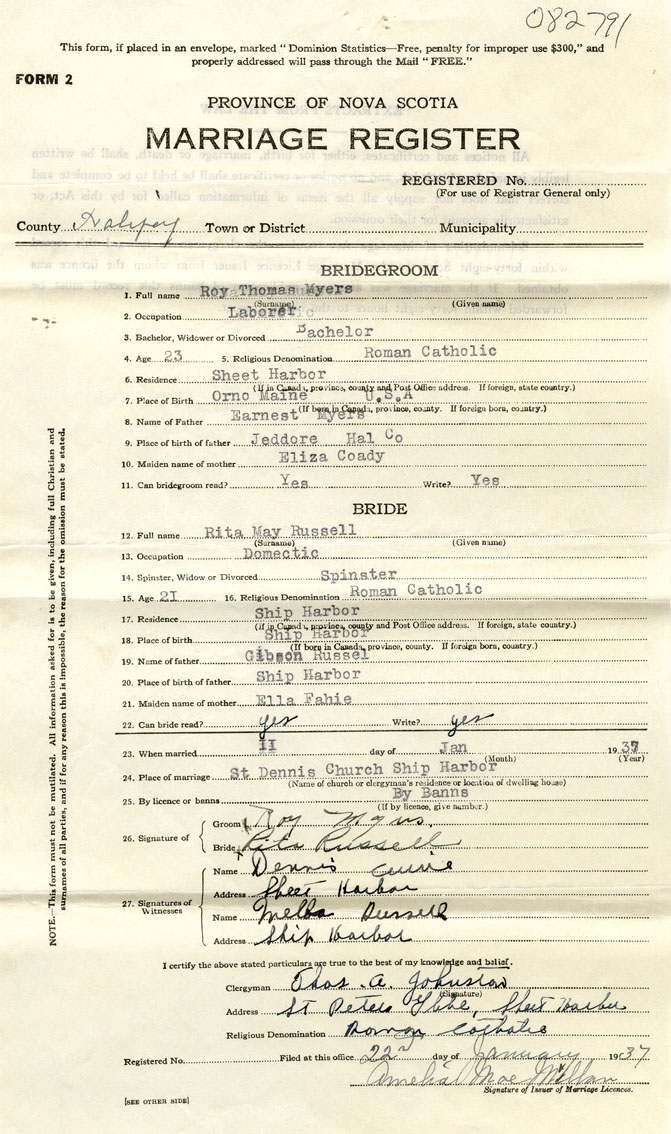 082791
This form, if placed in an envelope, marked “ Dominion Statistics—Free, penalty for improper use $300,” and
properly addressed will pass through the Mail “ FREE.”
FORM 2
PROVINCE OF NOVA SCOTIA
MARRIAGE REGISTER
REGISTERED No.
(For use of Registrar General only)
County Halifax Town or District Municipality
BRIDEGROOM
1. Full name Roy Thomas Myers
(Surname) (Given name)
2. Occupation Laborer
3. Bachelor, Widower or Divorced Bachelor
4. Age 23 5. Religious Denomination Roman Catholic
6. Residence Sheet Harbor
(If in Canada, province, county and Post Office address. If foreign, state country.)
7. Place of Birth Orno Maine U.S.A
(If born in Canada, province, county. If foreign born, country.)
8. Name of Father Earnest Myers
9. Place of birth of father Jeddore Hal Co
10. Maiden name of mother Eliza Coady
11. Can bridegroom read? Yes Write? Yes
BRIDE
12. Full name Rita May Russell
(Surname) (Given name)
13. Occupation Domectic
14. Spinster, Widow or Divorced Spinster
15. Age 2I 16. Religious Denomination Roman Catholic
17. Residence Ship Harbor
(If in Canada, province, county and Post Office address. If foreign, state country.)
18. Place of birth Ship Harbor
(If born in Canada, province, county. If foreign born, country.)
19. Name of father Gibson Russel
20. Place of birth of father Ship Harbor
21. Maiden name of mother Ella Fahie
22. Can bride read? yes Write? yes
23. When married II day of Jan 1937
(Month) (Year)
24. Place of marriage St Dennis Church Ship Harbor
(Name of church or clergyman's residence or location of dwelling house)
25. By licence or banns By Banns
(If by licence, give number.)
26. Signature of
Groom Roy Myrs.
Bride Rita Russell
27. Signatures of Witnesses
Name Dennis Currie
Address Sheet Harbor
Name Melba Russell
Address Ship Harbor
I certify the above stated particulars are true to the best of my knowledge and belief.
Clergyman Thos. A. Johnston
(Signature)
Address St Peters Glebe, Sheet Harbor
Religious Denomination Roman Catholic
Registered No. Filed at this office 22nd day of January 1937
Amelia Mae Millan
Signature of Issuer of Marriage Licences.
[SEE OTHER SIDE]
NOTE.—This form must not be mutilated. All information asked for is to be given, including full Christian and
surnames of all parties, and if for any reason this is impossible, the reason for the omission must be stated.